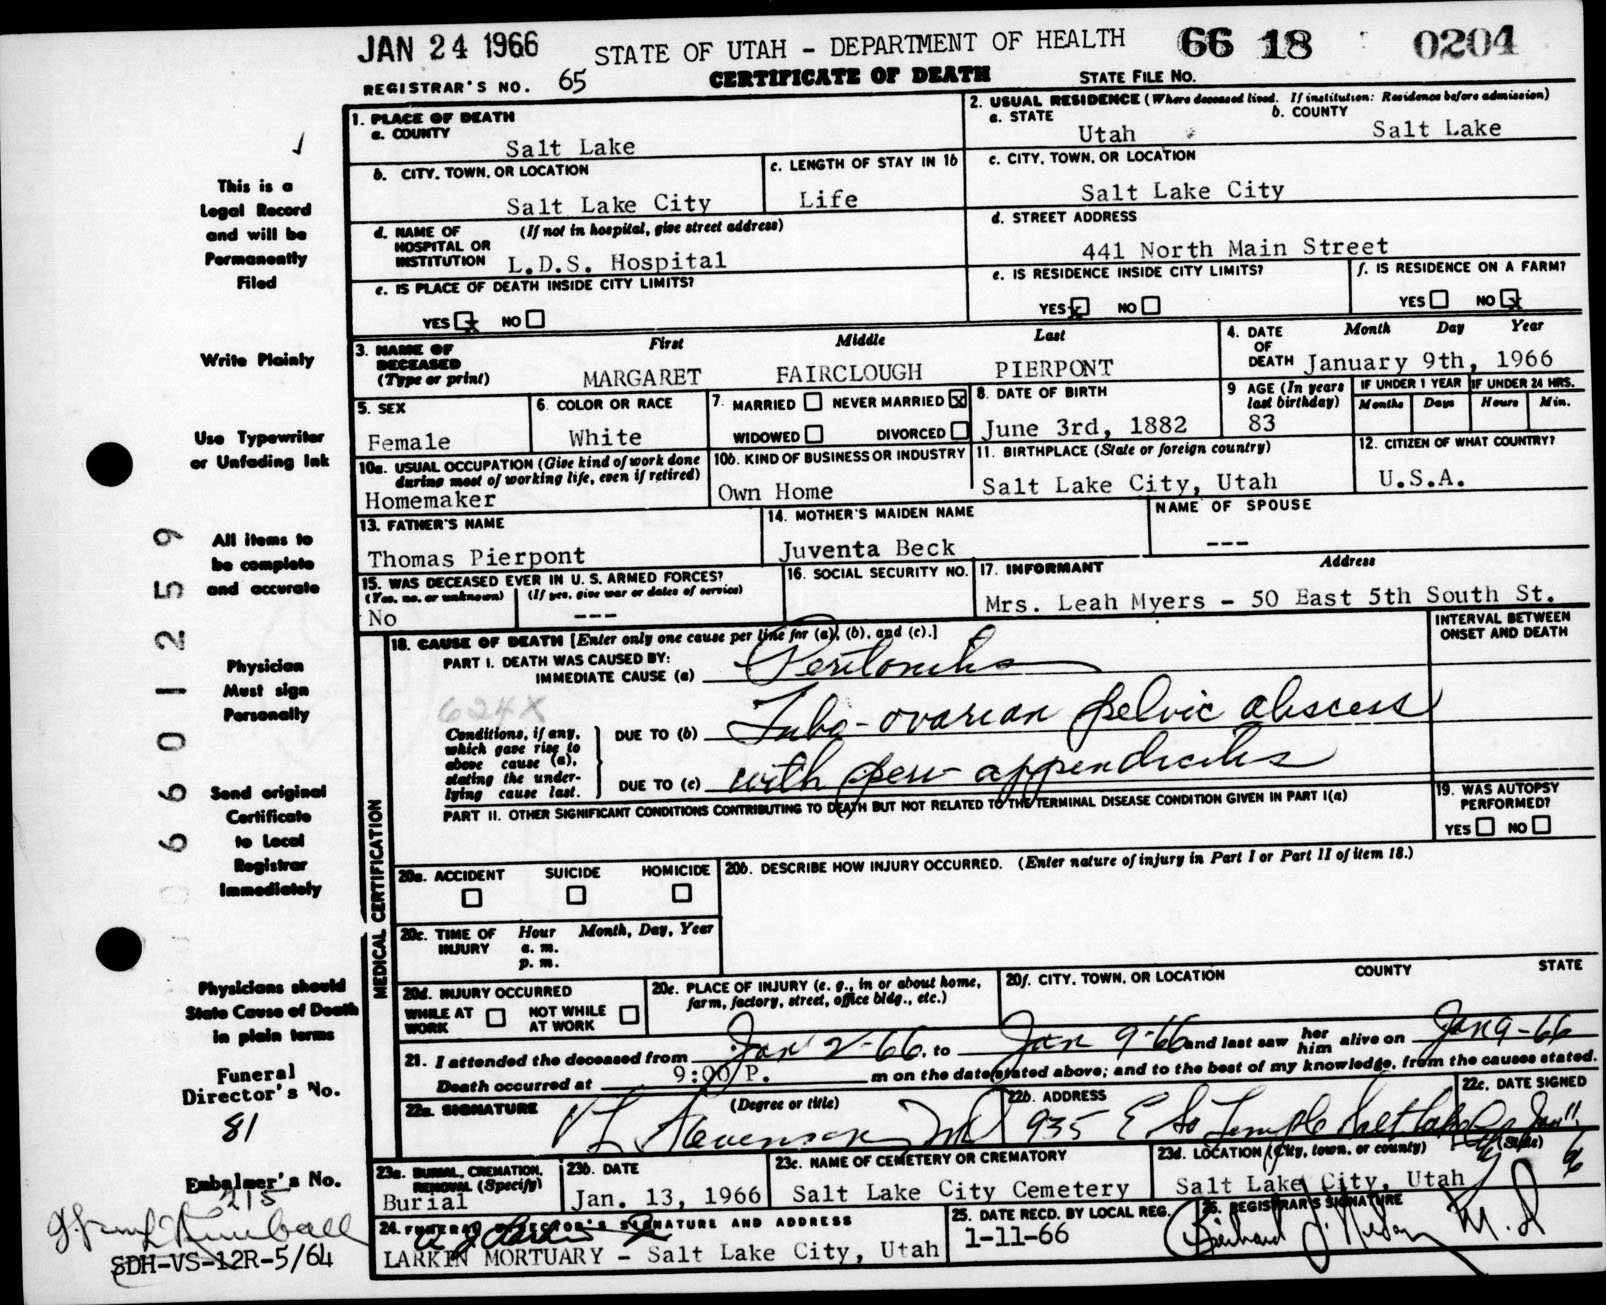 JAN 24 1966 STATE OF UTAH - DEPARTMENT OF HEALTH 66 18 0204
REGISTRAR'S NO. 65 CERTIFICATE OF DEATH STATE FILE NO.
1. PLACE OF DEATH
a. COUNTY
Salt Lake
2. USUAL RESIDENCE (Where deceased lived. If institution: Residence before admission)
a. STATE b. COUNTY
Utah Salt Lake
b. CITY, TOWN, OR LOCATION
Salt Lake City
c. LENGTH OF STAY IN 1b
Life
c. CITY, TOWN, OR LOCATION
Salt Lake City
d. NAME OF (If not in hospital, give street address)
HOSPITAL OR
INSTITUTION L.D.S. Hospital
d. STREET ADDRESS
441 North Main Street
e. IS PLACE OF DEATH INSIDE CITY LIMITS?
YES x NO
e. IS RESIDENCE INSIDE CITY LIMITS?
YES x NO
f. IS RESIDENCE ON A FARM?
YES NO x
3. NAME OF
DECEASED
(Type or print)
First Middle Last
MARGARET FAIRCLOUGH PIERPONT
4. DATE
OF
DEATH
Month Day Year
January 9th, 1966
5. SEX
Female
6. COLOR OR RACE
White
7. MARRIED NEVER MARRIED x
WIDOWED DIVORCED
8. DATE OF BIRTH
June 3rd, 1882
9 AGE (In years
last birthday)
83
IF UNDER 1 YEAR IF UNDER 24 HRS.
Months Days Hours Min.
10a. USUAL OCCUPATION (Give kind of work done
during most of working life, even if retired)
Homemaker
10b. KIND OF BUSINESS OR INDUSTRY
Own Home
11. BIRTHPLACE (State or foreign country)
Salt Lake City, Utah
12. CITIZEN OF WHAT COUNTRY?
U.S.A.
13. FATHER'S NAME
Thomas Pierpont
14. MOTHER'S MAIDEN NAME
Juventa Beck
NAME OF SPOUSE
---
15. WAS DECEASED EVER IN U. S. ARMED FORCES?
(Yes, no, or unknown) (If yes, give war or dates of service)
No ---
16. SOCIAL SECURITY NO.
17. INFORMANT Address
Mrs. Leah Myers - 50 East 5th South St.
18. CAUSE OF DEATH [Enter only one cause per line for (a), (b), and (c).]
INTERVAL BETWEEN
ONSET AND DEATH
PART I. DEATH WAS CAUSED BY:
IMMEDIATE CAUSE (a) Peritonitis
624X
Conditions, if any,
which gave rise to
above cause (a),
stating the under-
lying cause last.
DUE TO (b) Tubo-ovarian pelvic abscess
DUE TO (c) with appendicitis
PART II. OTHER SIGNIFICANT CONDITIONS CONTRIBUTING TO DEATH BUT NOT RELATED TO THE TERMINAL DISEASE CONDITION GIVEN IN PART I(a)
19. WAS AUTOPSY
PERFORMED?
YES NO
MEDICAL CERTIFICATION
20a. ACCIDENT SUICIDE HOMICIDE
20b. DESCRIBE HOW INJURY OCCURRED. (Enter nature of injury in Part I or Part II of item 18.)
20c. TIME OF Hour Month, Day, Year
INJURY a. m.
p. m.
20d. INJURY OCCURRED
WHILE AT NOT WHILE
WORK AT WORK
20e. PLACE OF INJURY (e. g., in or about home,
farm, factory, street, office bldg., etc.)
20f. CITY, TOWN, OR LOCATION COUNTY STATE
21. I attended the deceased from Jan 2-66, to Jan 9-66 and last saw her him alive on Jan 9-66
Death occurred at 9:00 P. m on the date stated above; and to the best of my knowledge, from the causes stated.
22a. SIGNATURE (Degree or title)
V L Stevenson MD
22b. ADDRESS
935 E So Temple Salt Lake
22c. DATE SIGNED
Jan 11
66
23a. BURIAL, CREMATION,
REMOVAL (Specify)
Burial
23b. DATE
Jan. 13, 1966
23c. NAME OF CEMETERY OR CREMATORY
Salt Lake City Cemetery
23d. LOCATION (City, town, or county) (State)
Salt Lake City, Utah
24. FUNERAL DIRECTOR'S SIGNATURE AND ADDRESS
LARKIN MORTUARY - Salt Lake City, Utah
25. DATE RECD. BY LOCAL REG.
1-11-66
26. REGISTRAR'S SIGNATURE
M. D
This is a
Legal Record
and will be
Permanently
Filed
Write Plainly
Use Typewriter
or Unfading Ink
All items to
be complete
and accurate
Physician
Must sign
Personally
Send original
Certificate
to Local
Registrar
Immediately
Physicians should
State Cause of Death
in plain terms
Funeral
Director's No.
81
Embalmer's No.
215
Kimball
SDH-VS-12R-5/64
06601259